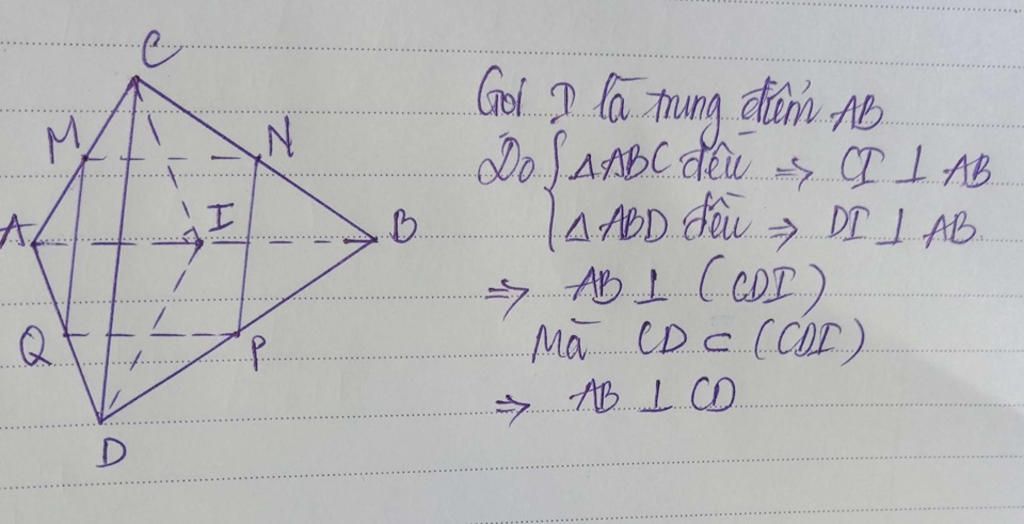 C
M
N
A
I
B
Q
P
D
Gọi I là trung điểm AB
Do { ΔABC đều ⇒ CI ⊥ AB
ΔABD đều ⇒ DI ⊥ AB
⇒ AB ⊥ (CDI)
Mà CD ⊂ (CDI)
⇒ AB ⊥ CD